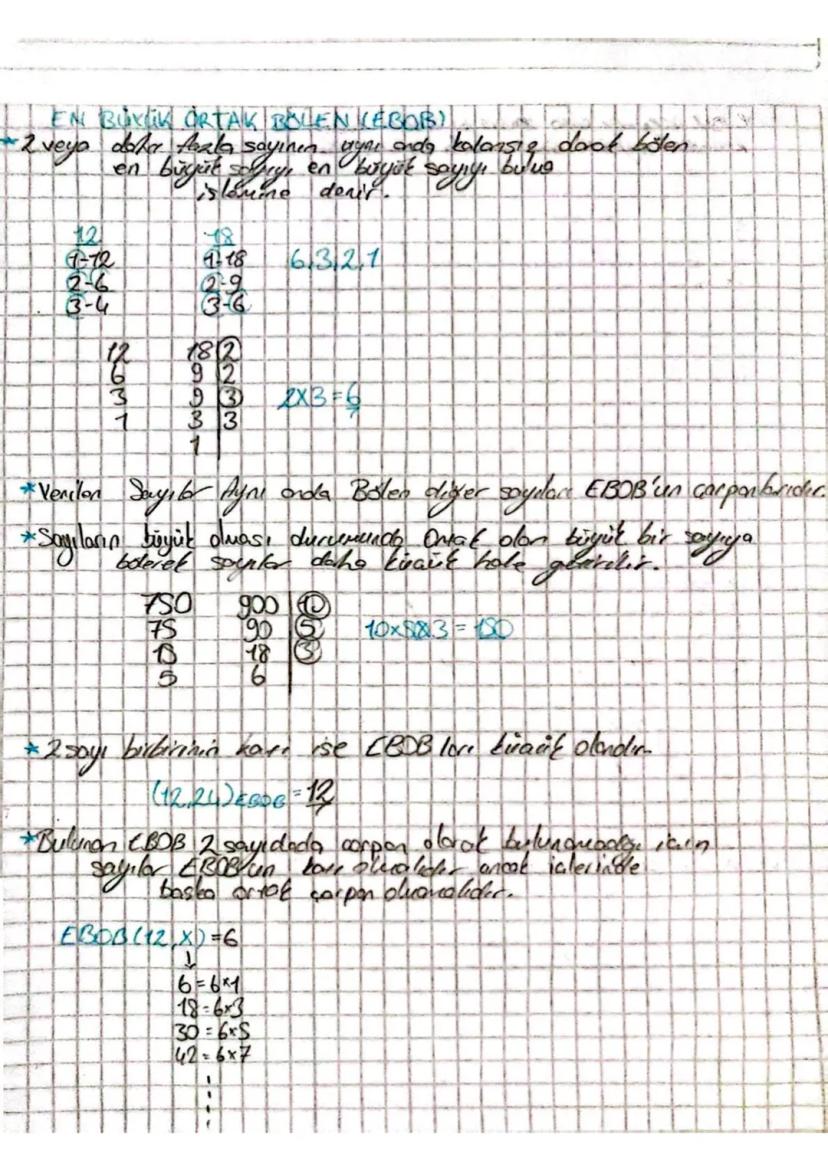 EN BÜYÜK ORTAK BÖLEN (EBOB)
* 2 veya daha fazla sayının aynı anda kalansız olarak bölen
en büyük sayıyı en büyük sayıyı bulua
işlemine denir.
12 18
1-12 1-18 6,3,2,1
2-6 2-9
3-4 3-6
12 18 2
6 9 2
3 9 3 2x3=6
1 3 3
1
* Verilen Sayılar Aynı anda Bölen diğer sayılar EBOB'un çarpanlarıdır.
* Sayıların büyük olması durumunda Ortak olan büyük bir sayıya
bölerek sayılar daha küçük hale getirilir.
750 900 10
75 90 5 10x5x3=150
15 18 3
5 6
* 2 sayı birbirinin katı ise EBOB ları küçük olandır.
(12,24)EBOB=12
* Bulunan EBOB 2 sayıdada çarpan olarak için
sayılar EBOB'un katı olmalıdır ancak içlerinde
başka ortak çarpan olmamalıdır.
EBOB(12,X)=6
↓
6=6x1
18=6x3
30=6x5
42=6x7